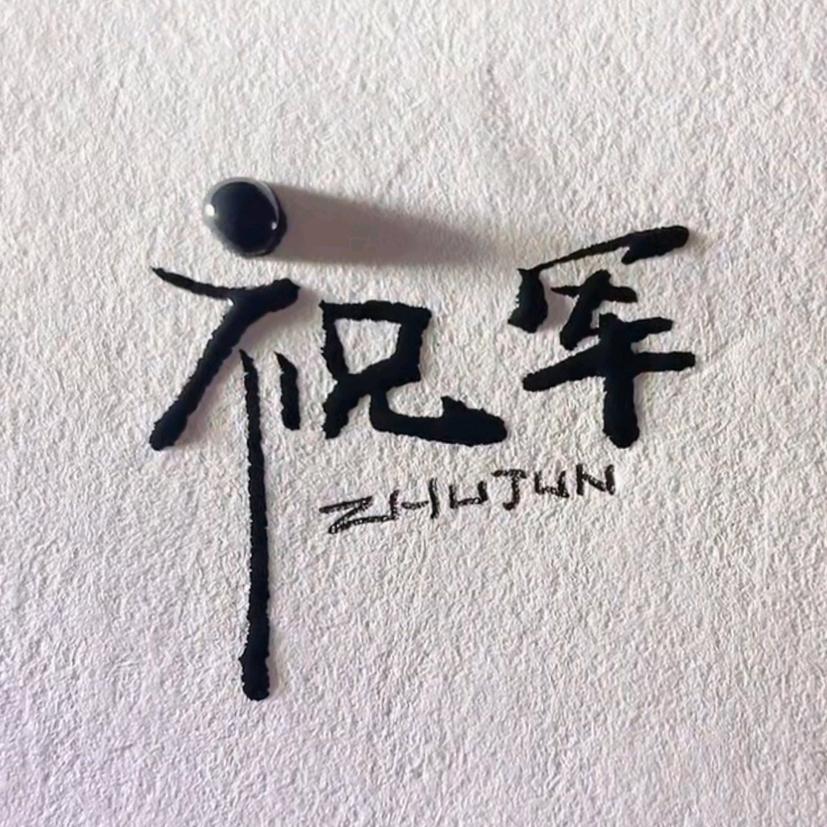 祝军
ZHUJUN